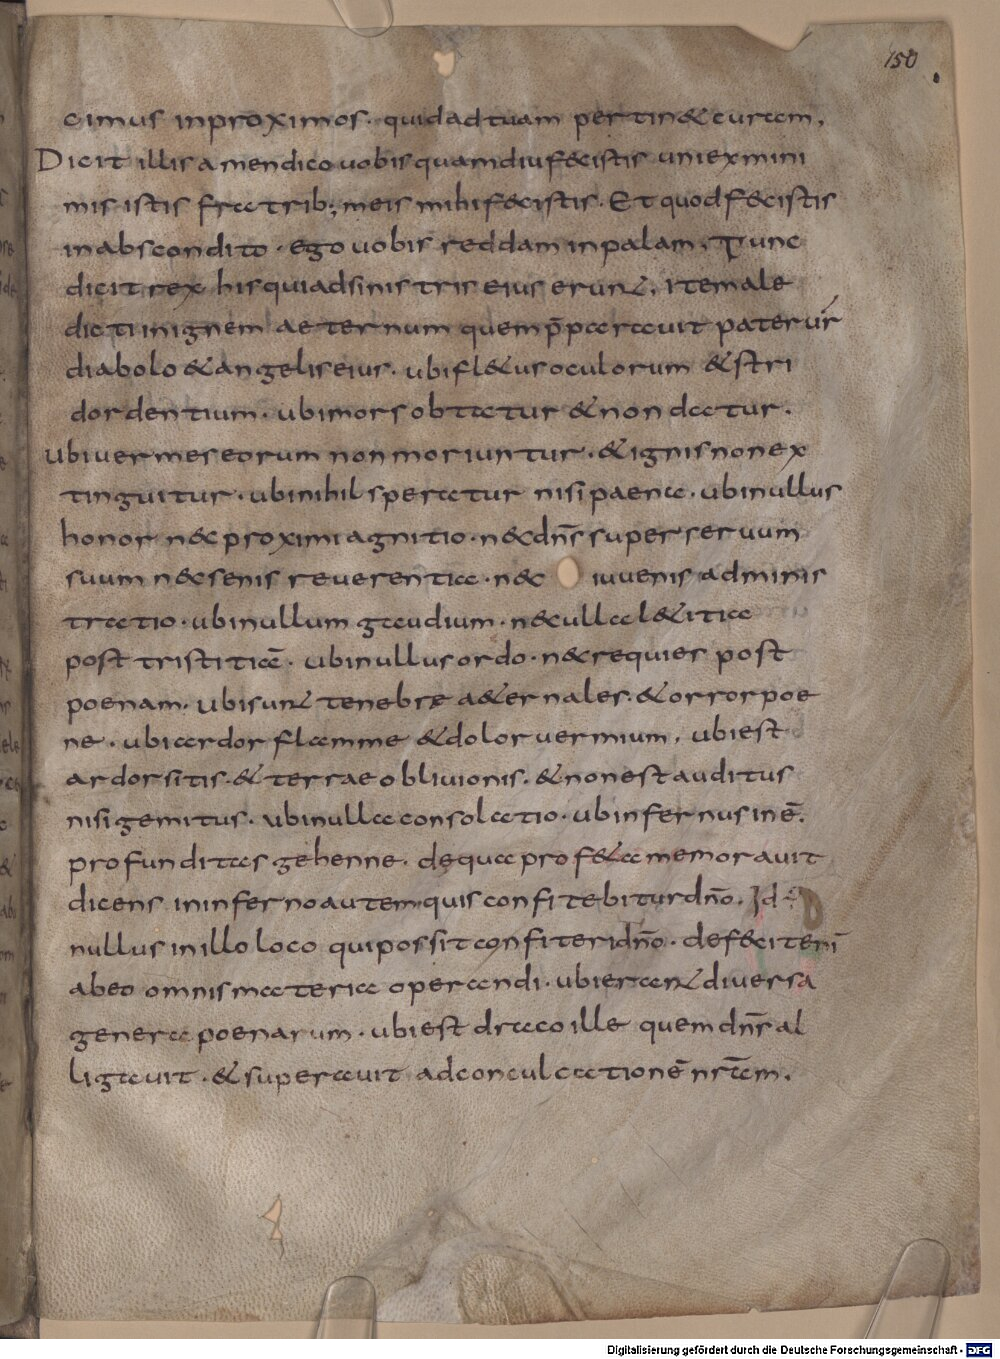 150
cimus inproximos. quidadtuam pertin&curam.
Dicit illis amendico uobisquamdiuf&cistis uniexmini
mis istis fratrib; meis mihif&cistis. Et quodf&cistis
inabscondito. ego uobis reddam inpalam. Tunc
dicit rex hisquiadsinistris eius erunt. item ale
dicti inignem aeternum quem p̄parauit pater ur̄
diabolo &angeliseius. ubifl&us oculorum &stri
dor dentium. ubimors obtatur &non datur.
ubi uermes eorum non moriuntur. &ignis nonex
tinguitur. ubinihil speratur nisi paena. ubinullus
honor n&c proximi agnitio. n&c dn̄s super seruum
suum n&c senis reuerentia. n&c iuuenis adminis
tratio. ubinullum gaudium. n&culla l&itia
post tristitiā. ubinullus ordo. n&crequies post
poenam. ubisunt tenebre a&ernales. &orror poe
ne. ubi ardor flamme &dolor uermium. ubiest
ardor sitis. &terrae obliuionis. &nonest auditus
nisi gemitus. ubinulla consolatio. ubinfernus inē.
profunditas gehenne. dequa prof&a memorauit
dicens ininferno autem quis confitebitur dn̄o. Id ÷
nullus inillo loco qui possit confiteri dn̄o. def&citenī
abeo omnis materia operandi. ubierant diuersa
genera poenarum. ubiest draco ille quem dn̄s al
ligauit. &superauit adconculcationē nr̄am.
Digitalisierung gefördert durch die Deutsche Forschungsgemeinschaft - DFG